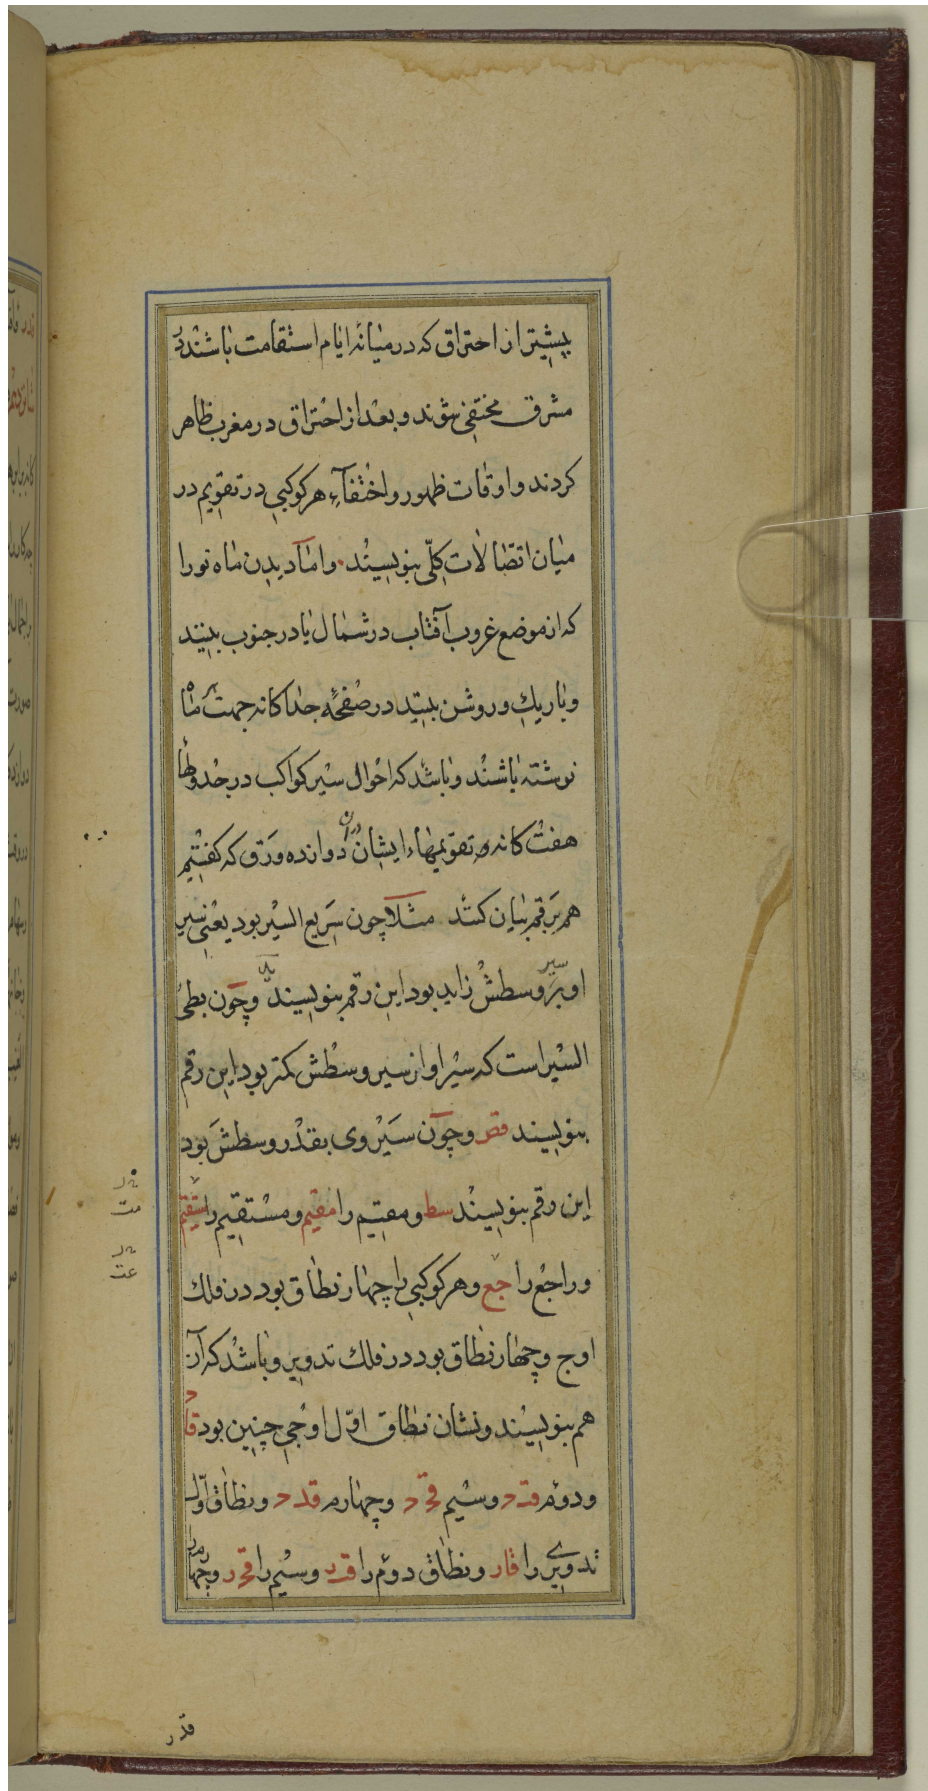 پیشتر از احتراق که در میانه ایام استقامت باشند در
مشرق مختفی شوند و بعد از احتراق در مغرب ظاهر
کردند و اوقات ظهور و اختفآء هر کوکبی در تقویم در
میان اتصالات کلّی بنویسند. و امّا دیدن ماه نو را
که از موضع غروب آفتاب در شمال یا در جنوب بینند
و باریك و روشن بینند در صفحهٔ جداکانه جهت ماه ما
نوشته باشند و باشد که احوال سیر کواکب در جدولها
هفت کانه در تقویمهاء ایشان در آن دوازده ورق که کفتیم
هم برقم بیان کنند مثلا چون سریع السیر بود یعنی سیر
او بر سیر وسطش زاید بود این رقم بنویسند ید و چون بطئ
السیر است که سیر او از سیر وسطش کمتر بود این رقم
بنویسند قص و چون سیر وی بقدر وسطش بود
این رقم بنویسند سط و مقیم را مقیم و مستقیم را مستقیم
و راجع را جع و هر کوکبی را چهار نطاق بود در فلك
اوج و چهار نطاق بود در فلك تدویر و باشد که آن
هم بنویسند و نشان نطاق اوّل اوجی چنین بود قا د
و دوّم قد د و سیم قح د و چهارم قد د و نطاق اوّل
تدویری را قار و نطاق دوّم را قد ر و سیم را قح ر و چهارم را
قدر